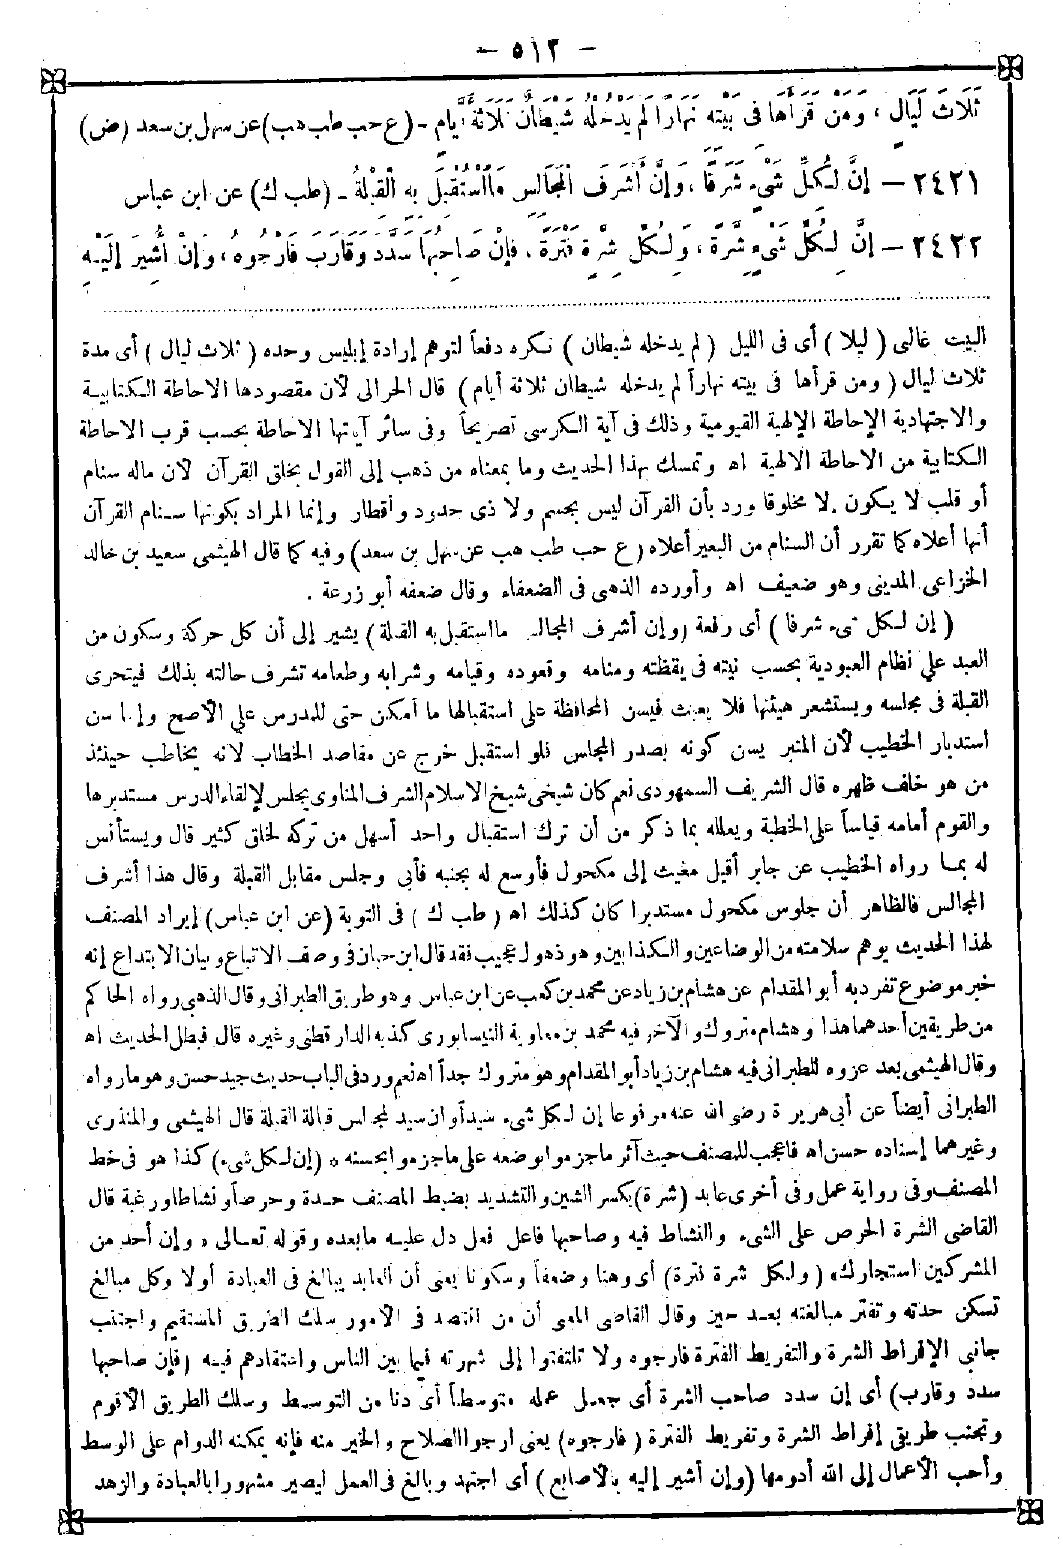 – ٥١٢ –
ثَلَاثَ لَيَالٍ ، وَمَنْ قَرَأَهَا فِى بَيْتِهِ نَهَارًا لَمْ يَدْخُلْهُ شَيْطَانٌ ثَلَاثَةَ أَيَّامٍ - (ع حب طب هب) عن سهل بن سعد (ض)
٢٤٢١ - إِنَّ لِكُلِّ شَيْءٍ شَرَفًا ، وَإِنَّ أَشْرَفَ الْمَجَالِسِ مَا اسْتُقْبِلَ بِهِ الْقِبْلَةُ - (طب ك) عن ابن عباس
٢٤٢٢ - إِنَّ لِكُلِّ شَيْءٍ شِرَّةً ، وَلِكُلِّ شِرَّةٍ فَتْرَةً ، فَإِنْ صَاحِبُهَا سَدَّدَ وَقَارَبَ فَارْجُوهُ ، وَإِنْ أُشِيرَ إِلَيْهِ
البيت غالى (ليلا) أى فى الليل (لم يدخله شيطان) نكره دفعاً لتوهم إرادة إبليس وحده (ثلاث ليال) أى مدة
ثلاث ليال (ومن قرأها فى بيته نهاراً لم يدخله شيطان ثلاثة أيام) قال الحرالى لأن مقصودها الاحاطة الكتابية
والاجتهادية الإحاطة الإلهية القيومية وذلك فى آية الكرسى تصريحاً وفى سائر آيتها الاحاطة بحسب قرب الاحاطة
الكتابية من الاحاطة الالهية اه وتمسك بهذا الحديث وما بمعناه من ذهب إلى القول بخلق القرآن لان ماله سنام
أو قلب لا يكون إلا مخلوقا ورد بأن القرآن ليس بجسم ولا ذى حدود وأقطار وإنما المراد بكونها سنام القرآن
أنها أعلاه كما تقرر أن السنام من البعير أعلاه (ع حب طب هب عن سهل بن سعد) وفيه كما قال الهيثمى سعيد بن خالد
الخزاعى المدينى وهو ضعيف اه وأورده الذهبى فى الضعفاء وقال ضعفه أبو زرعة .
(إن لكل شىء شرفا) أى رفعة (وإن أشرف المجالس ما استقبل به القبلة) يشير إلى أن كل حركة وسكون من
العبد على نظام العبودية بحسب نيته فى يقظته ومنامه وقعوده وقيامه وشرابه وطعامه تشرف حالته بذلك فيتحرى
القبلة فى مجلسه ويستشعر هيئتها فلا يعبث فيسن المحافظة على استقبالها ما أمكن حتى للمدرس على الأصح وإنما سن
استدبار الخطيب لأن المنبر يسن كونه بصدر المجلس فلو استقبل خرج عن مقاصد الخطاب لانه يخاطب حينئذ
من هو خلف ظهره قال الشريف السمهودى نعم كان شيخى شيخ الاسلام الشرف المناوى يجلس لإلقاء الدرس مستدبرها
والقوم أمامه قياساً على الخطبة ويعلله بما ذكر من أن ترك استقبال واحد أسهل من تركه لخلق كثير قال ويستأنس
له بما رواه الخطيب عن جابر أقبل مغيث إلى مكحول فأوسع له بجنبه فأبى وجلس مقابل القبلة وقال هذا أشرف
المجالس فالظاهر أن جلوس مكحول مستدبرا كان كذلك اه (طب ك) فى التوبة (عن ابن عباس) إيراد المصنف
لهذا الحديث يوهم سلامته من الوضاعين والكذابين وهو ذهول عجيب فقد قال ابن حبان فى وصف الاتباع وبيان الابتداع إنه
خبر موضوع تفرد به أبو المقدام عن هشام بن زياد عن محمد بن كعب عن ابن عباس وهو طريق الطبرانى وقال الذهبى رواه الحاكم
من طريقين أحدهما هذا وهشام متروك والآخر فيه محمد بن معاوية النيسابورى كذبه الدارقطنى وغيره قال فبطل الحديث اه
وقال الهيثمى بعد عزوه للطبرانى فيه هشام بن زياد أبو المقدام وهو متروك جداً اه نعم ورد فى الباب حديث جيد حسن وهو ما رواه
الطبرانى أيضاً عن أبى هريرة رضى الله عنه مرفوعا إن لكل شىء سيداً وإن سيد المجالس قبالة القبلة قال الهيثمى والمنذرى
وغيرهما إسناده حسن اه فاعجب للمصنف حيث آثر ما جزموا بوضعه على ما جزموا بحسنه * (إن لكل شىء) كذا هو فى خط
المصنف وفى رواية عمل وفى أخرى عابد (شرة) بكسر الشين والتشديد بضبط المصنف حدة وحرصاً ونشاطا ورغبة قال
القاضى الشرة الحرص على الشىء والنشاط فيه وصاحبها فاعل فعل دل عليه ما بعده وقوله تعالى ، وإن أحد من
المشركين استجارك، (ولكل شرة فترة) أى وهنا وضعفاً وسكونا يعنى أن العابد يبالغ فى العبادة أولا وكل مبالغ
تسكن حدته وتفتر مبالغته بعد حين وقال القاضى المعنى أن من اقتصد فى الأمور سلك الطريق المستقيم واجتنب
جانبى الإفراط الشرة والتفريط الفترة فارجوه ولا تلتفتوا إلى شهرته فيما بين الناس واعتقادهم فيه (فإن صاحبها
سدد وقارب) أى إن سدد صاحب الشرة أى جعل عمله متوسطاً أى دنا من التوسط وسلك الطريق الأقوم
وتجنب طريقى إفراط الشرة وتفريط الفترة (فارجوه) يعنى ارجوا الصلاح والخير منه فإنه يمكنه الدوام على الوسط
وأحب الأعمال إلى الله أدومها (وإن أشير إليه بالأصابع) أى اجتهد وبالغ فى العمل ليصير مشهورا بالعبادة والزهد